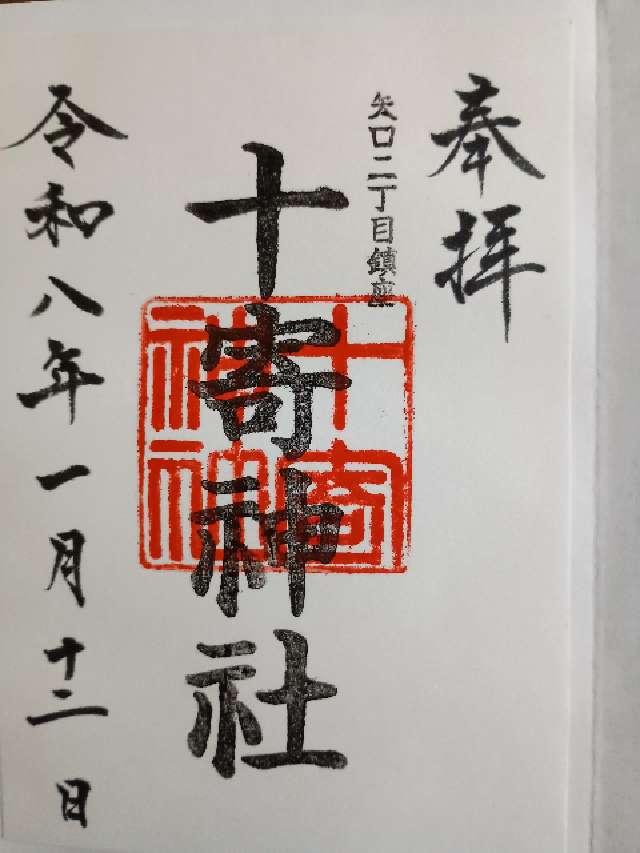 奉拝
矢口二丁目鎮座
十寄神社
十寄
神社
令和八年一月十二日